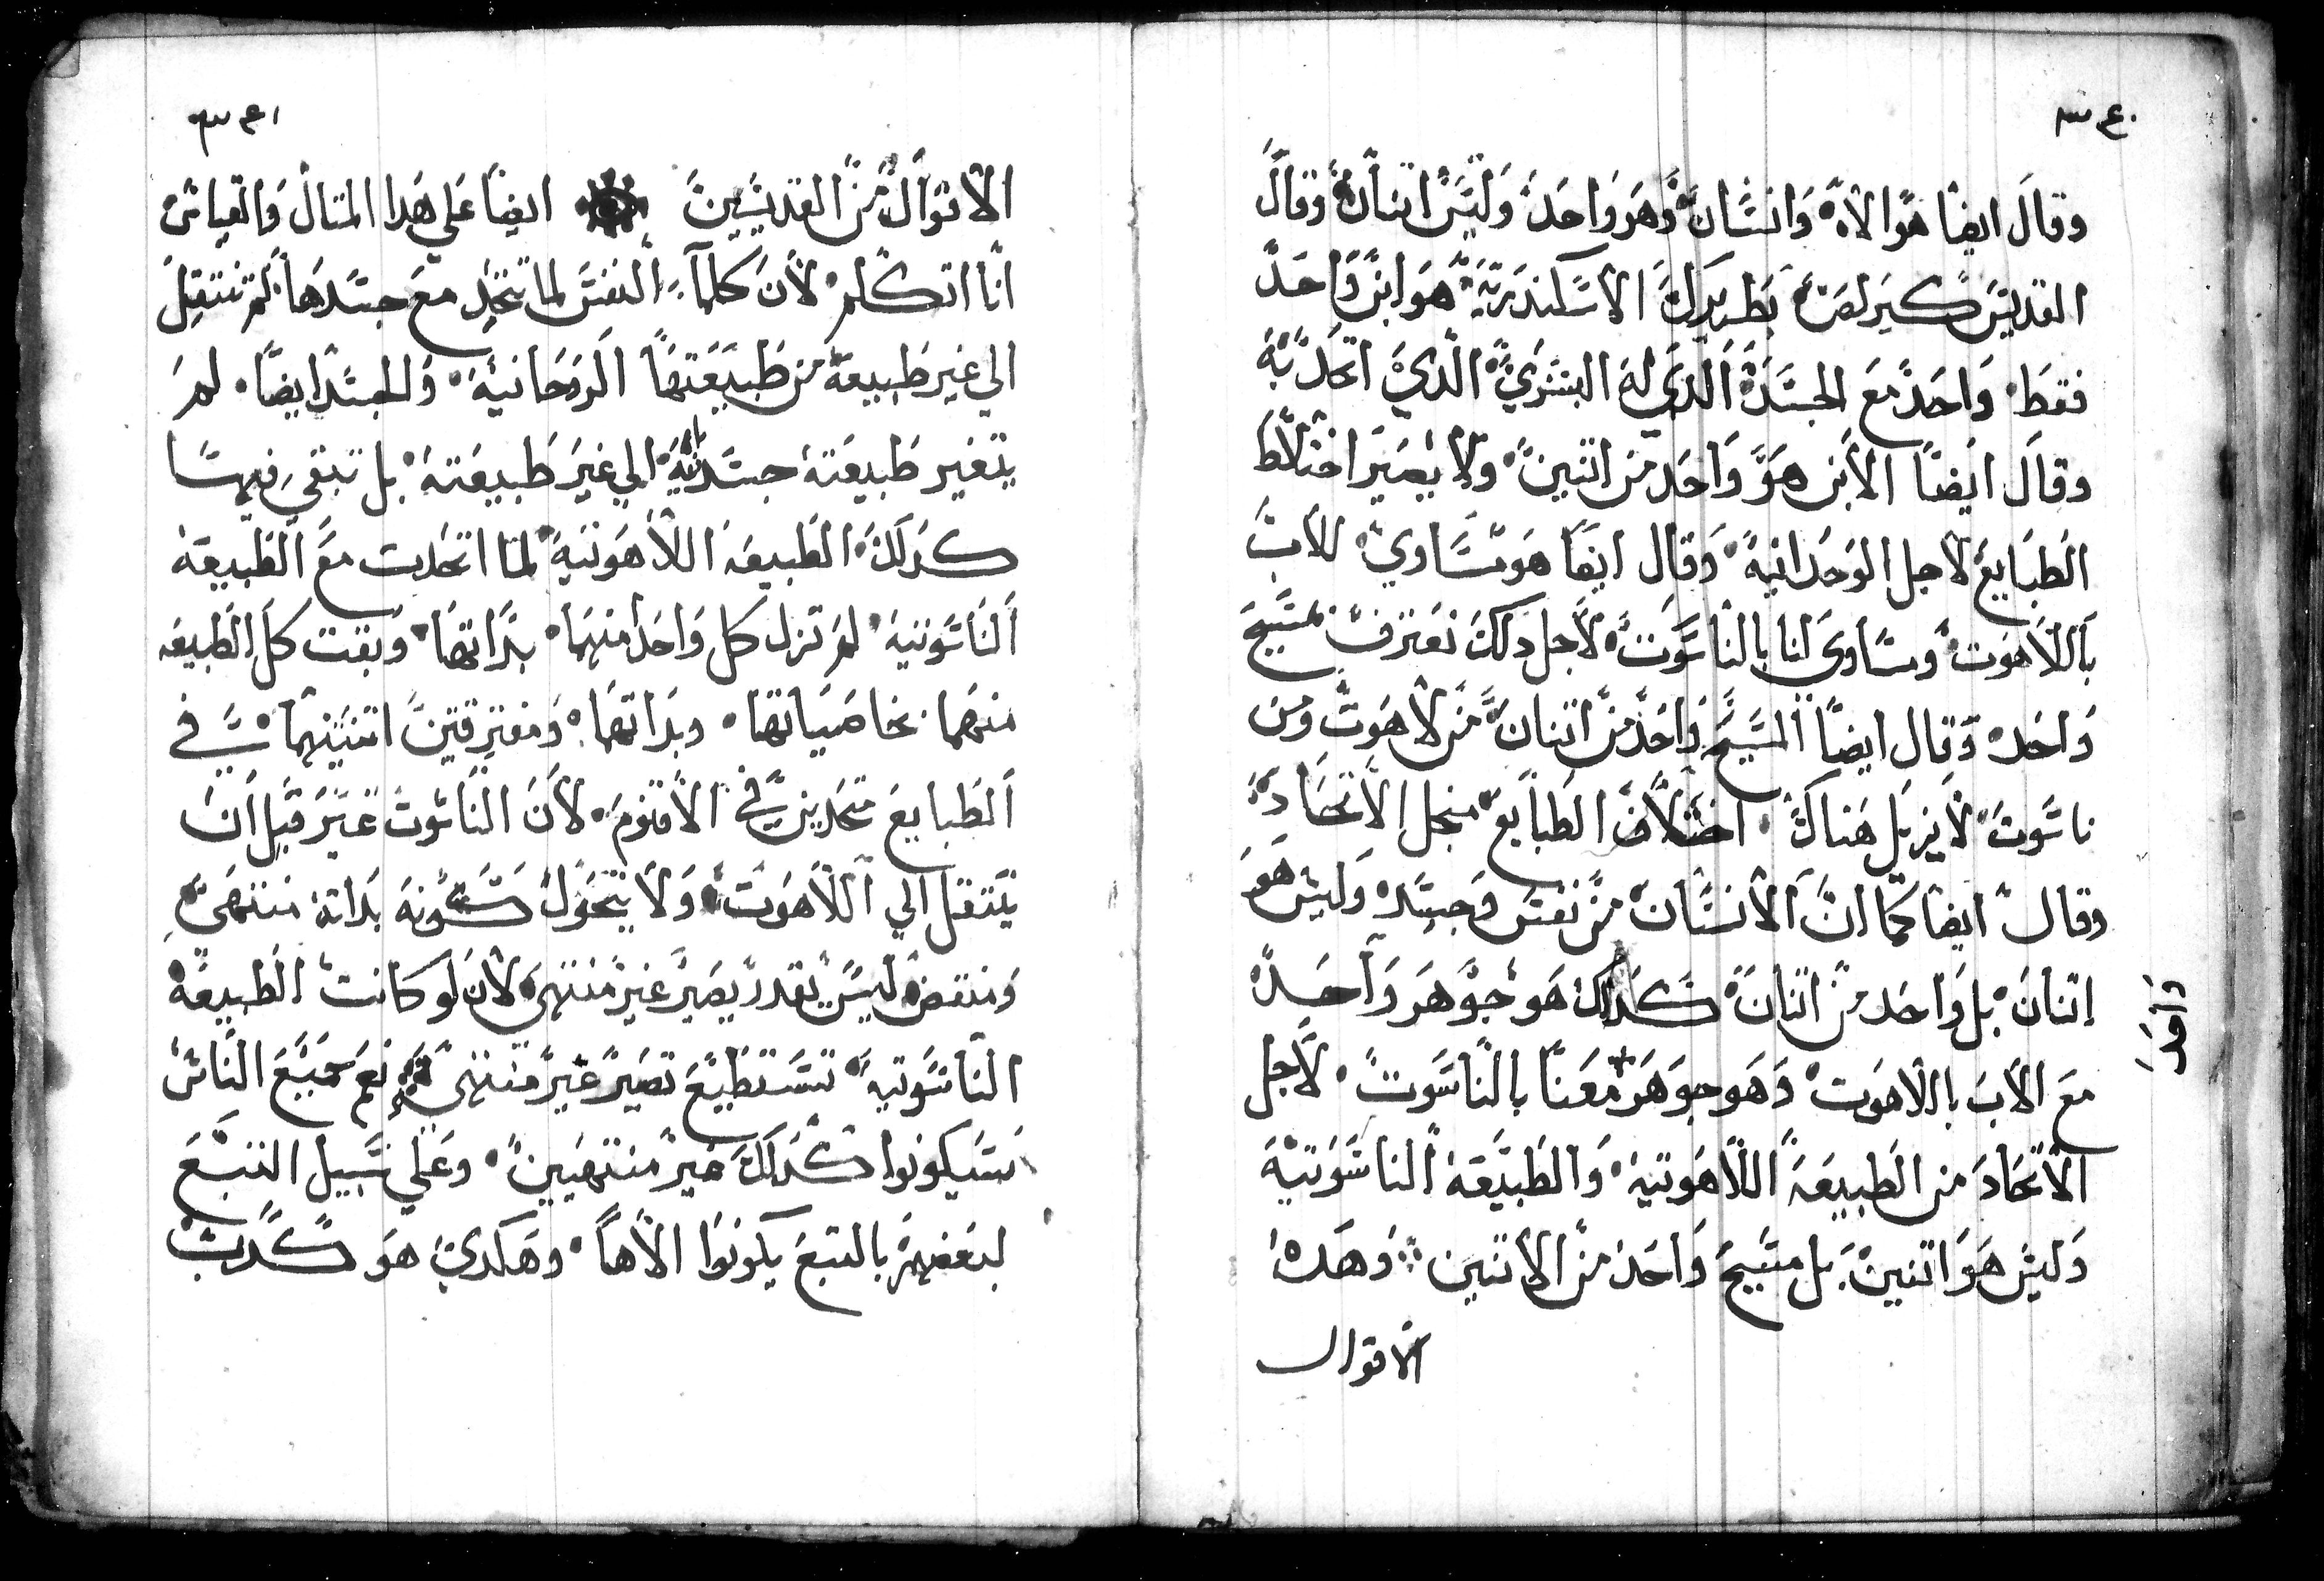 وقال ايضا هو الاه وانسان وهو واحد وليس اتنان وقال
القديس كيرلص بطريرك الاسكندرية هو ابن واحد
فقط واحد مع الجسد الدي له البشري الدي اتحد به
وقال ايضا الابن هو واحد من اتنين ولا يصير اختلاط
الطبايع لاجل الوحدانية وقال ايضا هو مساوي للاب
باللاهوت ومساوي لنا بالناسوت لاجل دلك نعترف بمسيح
واحد وقال ايضا المسيح واحد من اتنان من لاهوت ومن
ناسوت لا يزيل هناك اختلاف الطبايع منجل الاتحاد
وقال ايضا كما ان الانسان من نفس وجسد وليس هو
اتنان بل واحد من اتنان كدلك هو جوهر واحد
مع الاب باللاهوت وهو جوهر معنا بالناسوت لاجل
واحد
الاتحاد من الطبيعة اللاهوتية والطبيعة الناسوتية
وليس هو اتنين بل مسيح واحد من الاتنين وهده
الاقوال
الاقوال من القديسين ايضا علي هدا المتال والقياس
انا اتكلم لان كلما النفس لما تتحد مع جسدها لم تنتقل
الي غير طبيعة من طبيعتها الروحانية والجسد ايضا لم
يتغير طبيعته جسدانية الي غير طبيعته بل تبقي فيهما
كدلك الطبيعه اللاهوتية لما اتحدت مع الطبيعة
الناسوتية لم تزل كل واحد منهما بداتها وبقت كل الطبيعه
منهما بخاصياتها وبداتها ومفترقتين اتنينهما في
الطبايع متحدين في الاقنوم لان الناسوت غير قبل ان
يتنتقل الي اللاهوت ولا يتحول كونه بداته منتهي
ومنتقص ليس يقدر يصير غير منتهي لان لو كانت الطبيعة
الناسوتية تستطيع تصير غير منتهي نعم جميع الناس
سيكونوا كدلك غير منتهيين وعلي سبيل التتبع
لبعضهم بالتبع يكونوا الاها وهكدي هو كدب